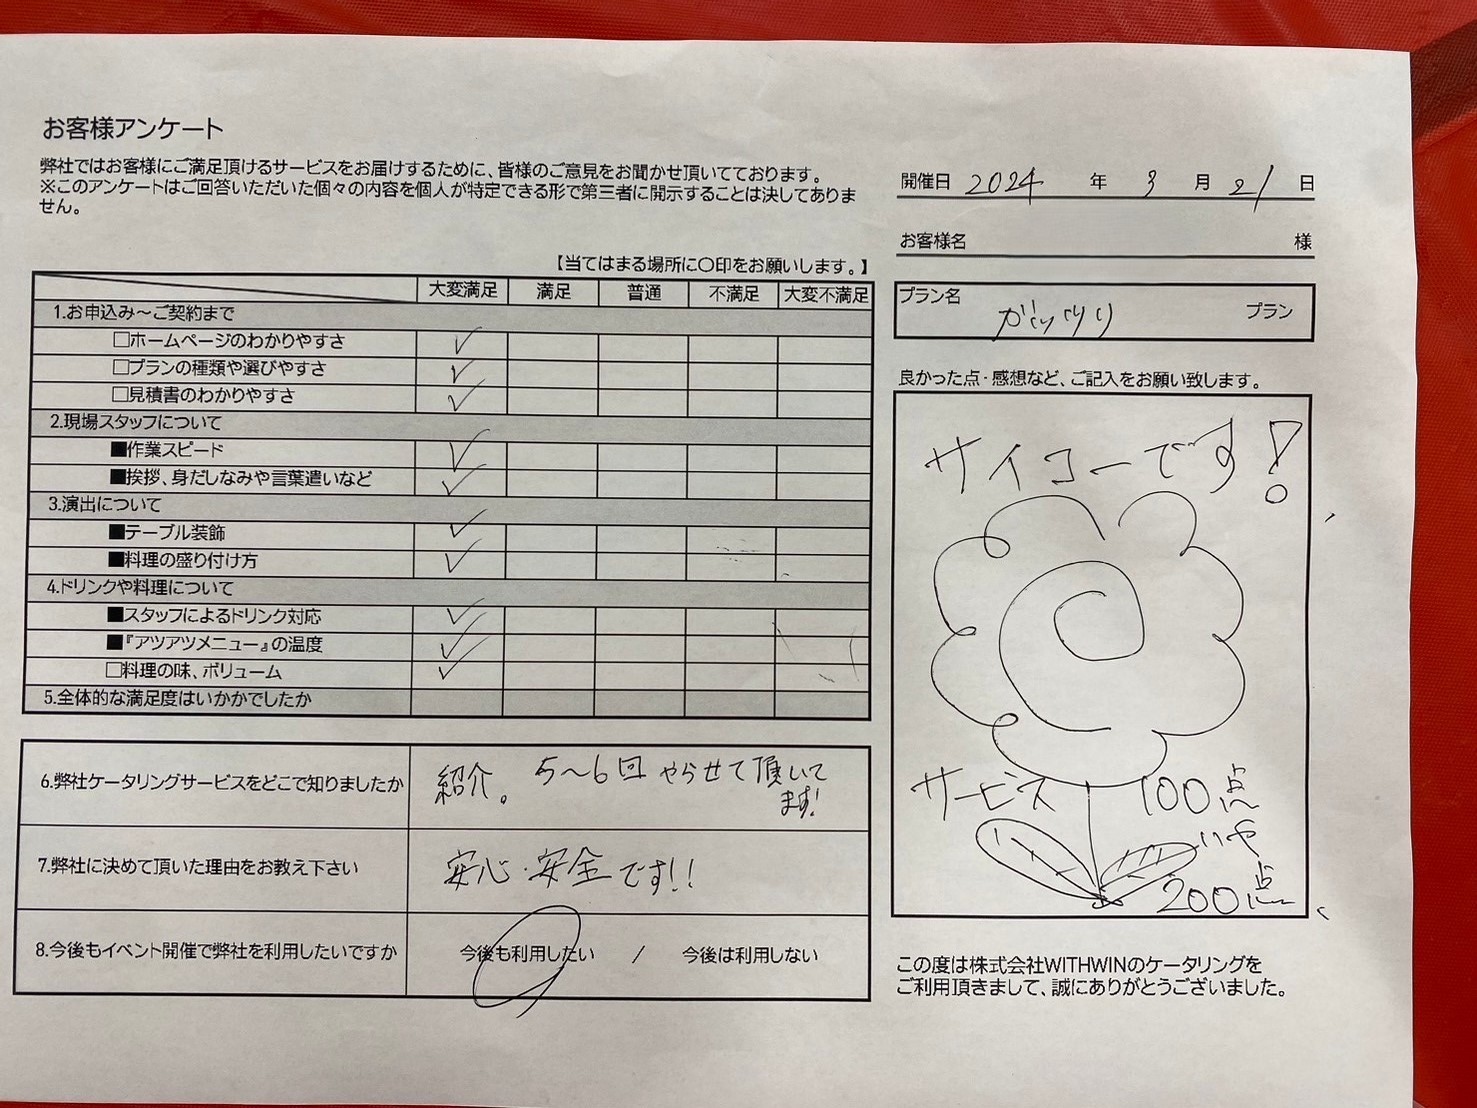 お客様アンケート
弊社ではお客様にご満足頂けるサービスをお届けするために、皆様のご意見をお聞かせ頂いてております。
※このアンケートはご回答いただいた個々の内容を個人が特定できる形で第三者に開示することは決してありま
せん。
開催日 2024 年 3 月 21 日
お客様名 様
プラン名 がっつり プラン
【当てはまる場所に〇印をお願いします。】
大変満足 満足 普通 不満足 大変不満足
1.お申込み～ご契約まで
□ホームページのわかりやすさ ✓
□プランの種類や選びやすさ ✓
□見積書のわかりやすさ ✓
2.現場スタッフについて
■作業スピード ✓
■挨拶、身だしなみや言葉遣いなど ✓
3.演出について
■テーブル装飾 ✓
■料理の盛り付け方 ✓
4.ドリンクや料理について
■スタッフによるドリンク対応 ✓
■『アツアツメニュー』の温度 ✓
□料理の味、ボリューム ✓
5.全体的な満足度はいかかでしたか
6.弊社ケータリングサービスをどこで知りましたか
紹介。 5～6回 やらせて頂いて
ます!
7.弊社に決めて頂いた理由をお教え下さい
安心・安全です!!
8.今後もイベント開催で弊社を利用したいですか
今後も利用したい / 今後は利用しない
良かった点・感想など、ご記入をお願い致します。
サイコーです!
サービス 100点
いや
200点
この度は株式会社WITHWINのケータリングを
ご利用頂きまして、誠にありがとうございました。